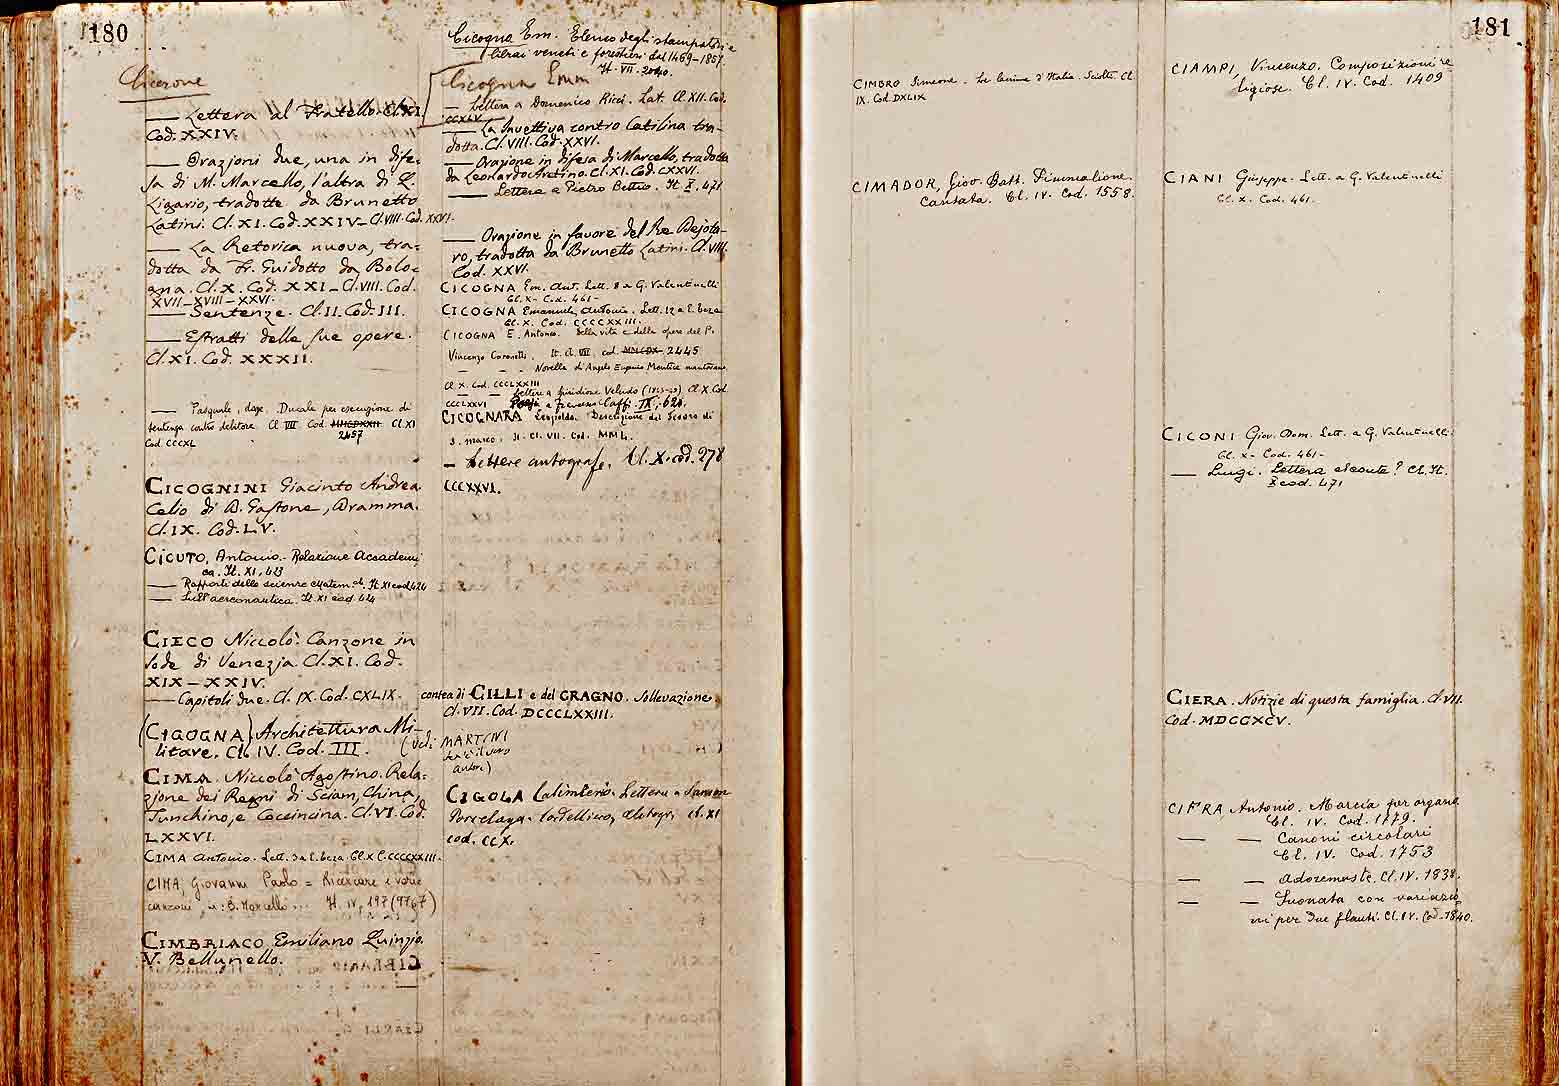 180
Cicerone
— Lettera al Fratello. Cl. XI.
Cod. XXIV.
— Orazioni due, una in dife-
sa di M. Marcello, l'altra di Q.
Ligario, tradotte da Brunetto
Latini. Cl. XI. Cod. XXIV — Cl. VIII. Cod. XXVI.
— La Retorica nuova, tra-
dotta da Fr. Guidotto da Bolo-
gna. Cl. X. Cod. XXI — Cl. VIII. Cod.
XVII — XVIII — XXVI.
— Sentenze. Cl. II. Cod. III.
— Estratti delle sue opere.
Cl. XI. Cod. XXXII.
— Pasquale, doge. Ducale per esecuzione di
sentenza contro debitore. Cl VII Cod. MMCDXXII Cl. XI
2457
Cod. CCCXL
CICOGNINI Giacinto Andrea
Celio di D. Gastone, Dramma.
Cl. IX. Cod. LV.
CICUTO, Antonio. Relazione Accademi
ca. It. XI, 423
— Rapporti delle scienze matem. It. XI cod. 424
— Sull'aereonautica. It. XI cod. 424
CIECO Niccolò. Canzone in
lode di Venezia. Cl. XI. Cod.
XIX — XXIV.
— Capitoli due. Cl. IX. Cod. CXLIX.
(CIGOGNA) Architettura Mi-
litare. Cl. IV. Cod. III.
CIMA. Niccolò Agostino. Rela-
zione dei Regni di Sciam, China,
Tunchino, e Coccincina. Cl. VI. Cod.
LXXVI.
CIMA Antonio. Lett. 3 a E. Cl. X C. CCCCXXIII.
CIMA, Giovanni Paolo = Ricercare e varie
canzoni B. Marcello... It. IV, 197 (9767)
CIMBRIACO Emiliano Quinzio.
V. Bellunello.
Cicogna Em. Elenco degli stampatori e
librai veneti e forestieri dal 1469-1857.
It. VII. 2040.
Cicogna Emm
— Lettera a Domenico Ricci. Lat. Cl. XII. Cod.
CCXLV.
— La Invettiva contro Catilina tra-
dotta. Cl. VIII. Cod. XXVI.
— Orazione in difesa di Marcello, tradotta
da Leonardo Aretino. Cl. XI. Cod. CXXVI.
— Lettera a Pietro Bettio. It X. 471
— Orazione in favore del Re Dejota-
ro, tradotta da Brunetto Latini. Cl. VIII.
Cod. XXVI.
CICOGNA Em. Ant. Lett. 8 a G. Valentinelli
Cl. X - Cod. 461 -
CICOGNA Emanuele Antonio. Lett. 12 a E.
Cl. X. Cod. CCCCXXIII.
CICOGNA E. Antonio. Della vita e delle opere del P.
Vincenzo Coronelli. It. cl. VII. cod. MMCDX 2445
— — Novella di Angelo Eugenio mantovano
Cl. X. Cod. CCCLXXIII
— Lettere a Veludo Cl. X. Cod.
CCCLXXVI a Caffi IX, 620.
CICOGNARA Leopoldo. Descrizione del Tesoro di
S. Marco. It. Cl. VII. Cod. MML.
— Lettere autografe. Cl. X. cod. 278
CCCXXVI.
contea di CILLI e del GRAGNO. Sollevazione.
Cl. VII. Cod. DCCCLXXIII.
(Vedi MARTINI
che è il vero
autore)
CIGOLA Calimerio. Lettera a
Porcelaga. Cl. XI
cod. CCX.
181
CIMBRO Simeone. Le lacrime d'Italia. Sciolti. Cl.
IX. Cod. DXLIX
CIMADOR, Giov. Batt. Pimmalione.
Cantata. Cl. IV. Cod. 1558.
CIAMPI, Vincenzo. Composizioni re-
ligiose. Cl. IV. Cod. 1409
CIANI Giuseppe. Lett. a G. Valentinelli
Cl. X. Cod. 461.
CICONI Giov. Dom. Lett. a G. Valentinelli
Cl. X - Cod. 461 -
— Luigi. Lettera Cl. It.
X cod. 471
CIERA. Notizie di questa famiglia. Cl. VII.
Cod. MDCCXCV.
CIFRA, Antonio. Marcia per organo
Cl. IV. Cod. 1779.
— — Canoni circolari
Cl. IV. Cod. 1753
— — Adoremoste. Cl. IV. 1838.
— — Suonata con variazio
ni per due flauti. Cl. IV. Cod. 1840.